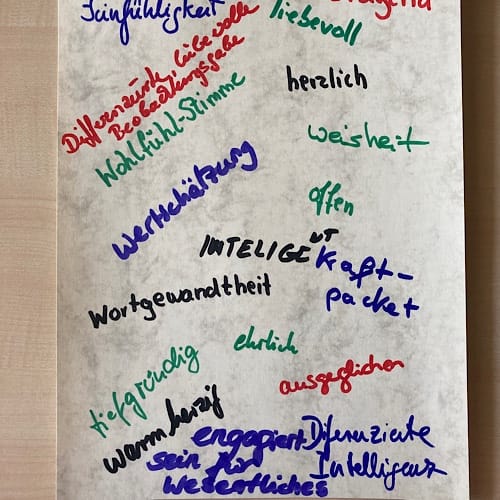 Feinfühligkeit
liebevoll
Differenzierte, liebevolle
Beobachtungsgabe
herzlich
Wohlfühl-Stimme
weisheit
Wertschätzung
offen
INTELIGENT
Kraft-
packet
Wortgewandtheit
ehrlich
tiefgründig
ausgeglichen
warmherzig
engagiert
sein für
Wesentliches
Diferenzierte
Intelligenz